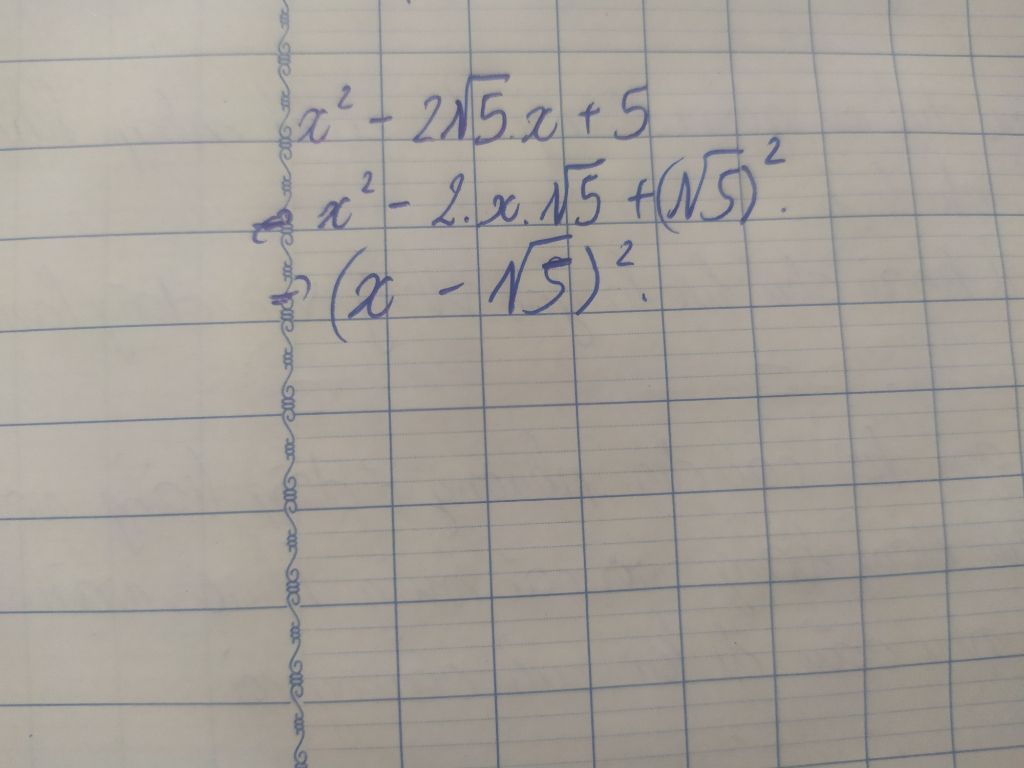 x² - 2√5.x + 5
x² - 2.x.√5 + (√5)².
(x - √5)².